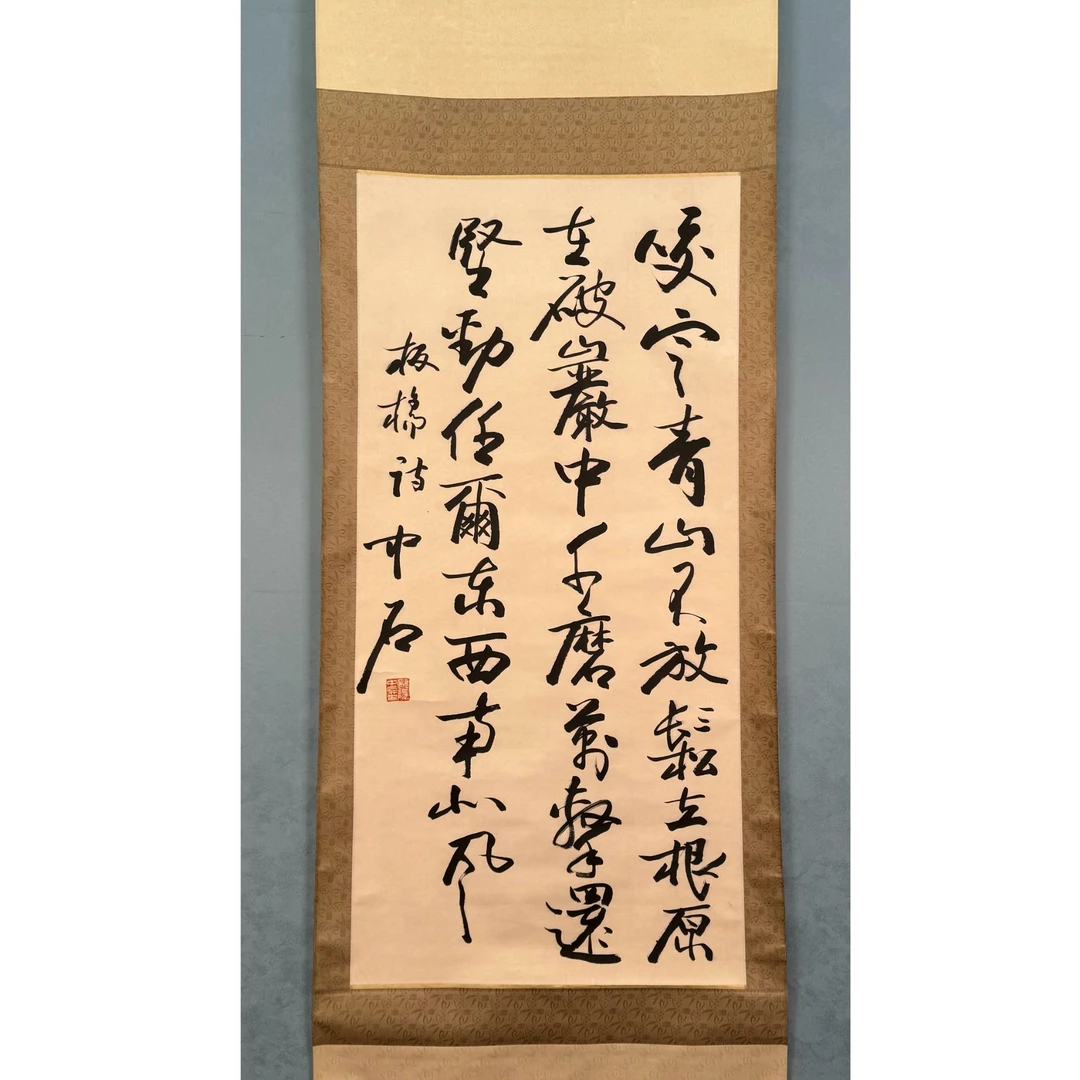 咬定青山不放鬆立根原
在破巖中千磨萬擊還
堅勁任爾东西南北风
板橋詩中石